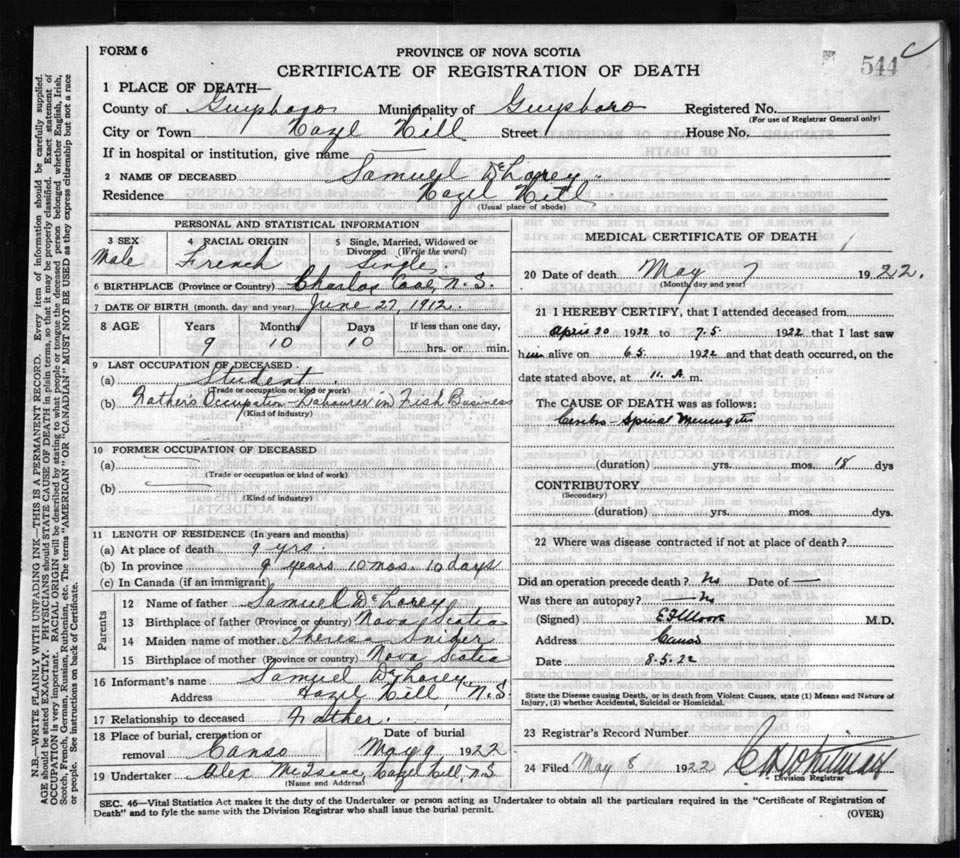 FORM 6
PROVINCE OF NOVA SCOTIA
544 C
CERTIFICATE OF REGISTRATION OF DEATH
1 PLACE OF DEATH—
County of Guysboro Municipality of Guysboro Registered No.
(For use of Registrar General only)
City or Town Hazel Hill Street House No.
If in hospital or institution, give name —
2 NAME OF DECEASED Samuel DeLorey
Residence Hazel Hill
(Usual place of abode)
PERSONAL AND STATISTICAL INFORMATION
3 SEX Male
4 RACIAL ORIGIN French
5 Single, Married, Widowed or Divorced (Write the word) Single
6 BIRTHPLACE (Province or Country) Charlos Cove, N.S.
7 DATE OF BIRTH (month, day and year) June 27, 1912
8 AGE Years 9 Months 10 Days 10 If less than one day, hrs. or min.
9 LAST OCCUPATION OF DECEASED
(a) Student
(Trade or occupation or kind of work)
(b) Father's Occupation - Labourer in Fish Business
(Kind of industry)
10 FORMER OCCUPATION OF DECEASED
(a) —
(Trade or occupation or kind of work)
(b) —
(Kind of industry)
11 LENGTH OF RESIDENCE (In years and months)
(a) At place of death 9 yrs.
(b) In province 9 years 10 mos. 10 days
(c) In Canada (if an immigrant)
Parents
12 Name of father Samuel DeLorey
13 Birthplace of father (Province or Country) Nova Scotia
14 Maiden name of mother Theresa
15 Birthplace of mother (Province or country) Nova Scotia
16 Informant's name Samuel DeLorey
Address Hazel Hill, N.S.
17 Relationship to deceased Father.
18 Place of burial, cremation or removal Canso Date of burial May 9 1922
19 Undertaker Alex McIsaac, Hazel Hill, N.S.
(Name and Address)
MEDICAL CERTIFICATE OF DEATH
20 Date of death May 7 1922.
(Month, day and year)
21 I HEREBY CERTIFY, that I attended deceased from
April 20 1922 to 7.5. 1922 that I last saw
him alive on 6.5. 1922 and that death occurred, on the
date stated above, at 11. A. m.
The CAUSE OF DEATH was as follows:
Cerebro-Spinal Meningitis
(duration) yrs. mos. 18 dys
CONTRIBUTORY
(Secondary)
(duration) yrs. mos. dys.
22 Where was disease contracted if not at place of death?
Did an operation precede death? No Date of —
Was there an autopsy? — No
(Signed) Moore M.D.
Address Canso
Date 8.5.22
State the Disease causing Death, or in death from Violent Causes, state (1) Means and Nature of
Injury, (2) whether Accidental, Suicidal or Homicidal.
23 Registrar's Record Number
24 Filed May 8 1922 Whitman
Division Registrar
SEC. 46—Vital Statistics Act makes it the duty of the Undertaker or person acting as Undertaker to obtain all the particulars required in the "Certificate of Registration of
Death" and to fyle the same with the Division Registrar who shall issue the burial permit.
(OVER)
N.B.—WRITE PLAINLY WITH UNFADING INK—THIS IS A PERMANENT RECORD. Every item of information should be carefully supplied.
AGE should be stated EXACTLY. PHYSICIANS should STATE CAUSE OF DEATH in plain terms, so that it may be properly classified. Exact statement of
OCCUPATION is very important. RACIAL ORIGIN will be described by stating to what people or tongue the deceased person belonged whether English, Irish,
Scotch, French, German, Russian, Ruthenian, etc. The terms "AMERICAN" OR "CANADIAN" MUST NOT BE USED as they express citizenship but not a race
or people. See instructions on back of Certificate.